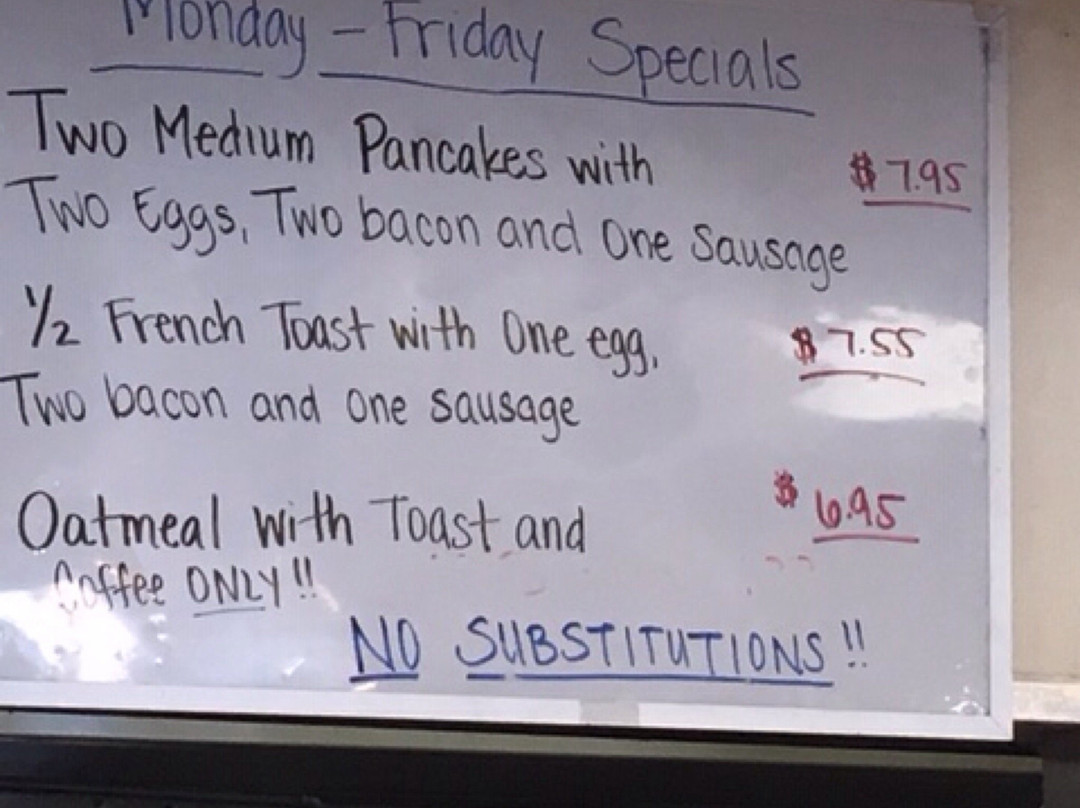 Monday - Friday Specials
Two Medium Pancakes with $7.95
Two Eggs, Two bacon and One Sausage
1/2 French Toast with One egg, $7.55
Two bacon and one sausage
Oatmeal with Toast and $6.95
Coffee ONLY!!
NO SUBSTITUTIONS!!